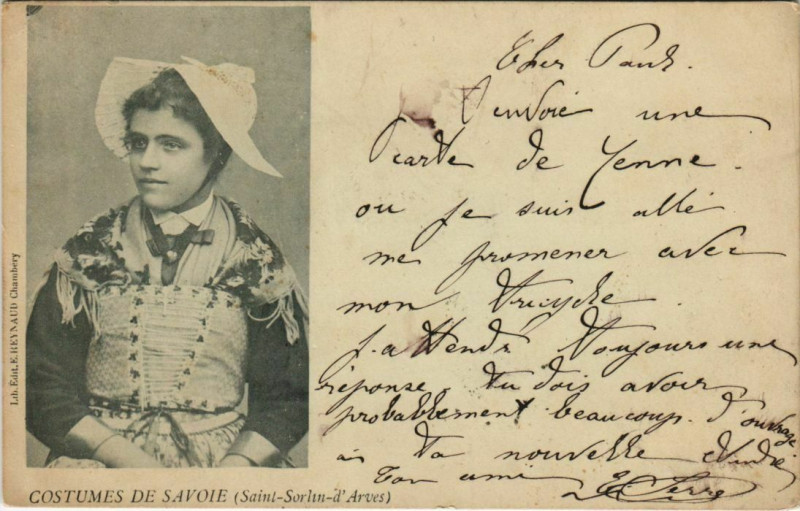 Cher Paul.
T'envoie une
carte de Yenne.
ou je suis allé
me promener avec
mon tricycle.
J'attends toujours une
réponse. tu dois avoir
probablement beaucoup d'ouvrage
à ta nouvelle
Ton ami E. Serre
Lib. Édit. E. REYNAUD Chambéry
COSTUMES DE SAVOIE (Saint-Sorlin-d'Arves)